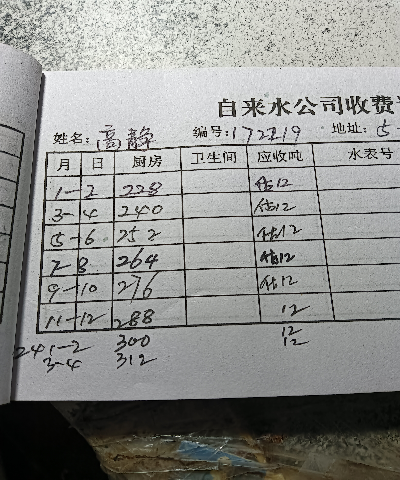 自来水公司收费
姓名：高静 编号：172219 地址：5-
月 日 厨房 卫生间 应收吨 水表号
1-2 228 估12
3-4 240 估12
5-6 252 估12
7-8 264 估12
9-10 276 估12
11-12 288 12
241-2 300 12
3-4 312 12